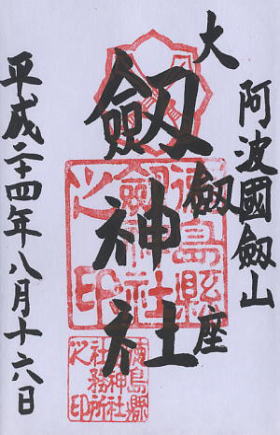 阿波國劔山
大劔座
劔神社
平成二十四年八月十六日
徳島縣劔神社之印
徳島縣劔神社社務所之印